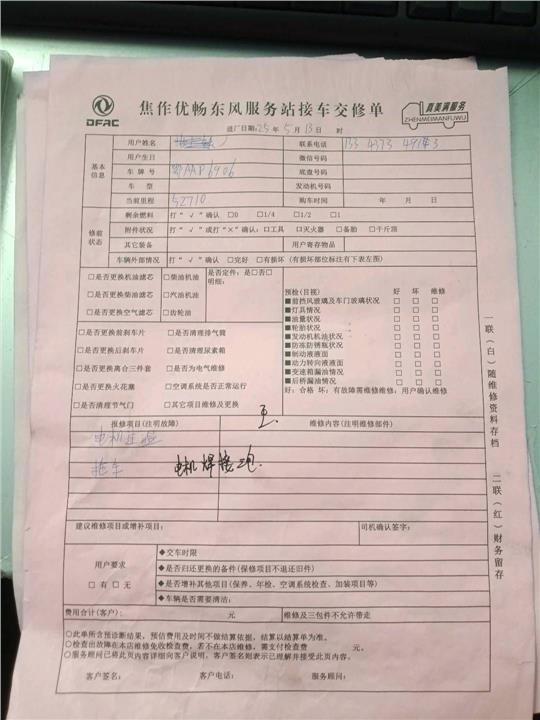 DFAC
焦作优畅东风服务站接车交修单
真美满服务
ZHENMEIMANFUWU
进厂日期:25年5月13日 时
基本信息
用户姓名
联系电话
用户生日
微信号码
车牌号
底盘号码
车型
发动机号码
当前里程 52710
购车时间 年 月 日
修前状态
剩余燃料 打“√”确认 □0 □1/4 □1/2 □1
附件状况 打“√”或打“×”确认:□工具 □灭火器 □备胎 □千斤顶
其它装备
用户寄存物品
车辆外部情况 打“√”确认 □完好 □有损坏(有损坏部位标注有下表左图)
□是否更换机油滤芯 □柴油机油
□是否更换柴油滤芯 □汽油机油
□是否更换空气滤芯 □齿轮油
是否定件:是□否□
明细:
□是否更换前刹车片 □是否清理排气筒
□是否更换后刹车片 □是否清理尿素箱
□是否更换离合三件套 □是否为电气维修
□是否更换火花塞 □空调系统是否正常运行
□是否清理节气门 □其它项目维修及更换
预检(目视) 好 坏 维修
■前挡风玻璃及车门玻璃状况 □ □ □
■灯具情况 □ □ □
■油量状况 □ □ □
■轮胎状况 □ □ □
■发动机机油状况 □ □ □
■防冻防锈瓶状况 □ □ □
■制动液液面 □ □ □
■动力转向液液面 □ □ □
■变速箱漏油情况 □ □ □
■后桥漏油情况 □ □ □
好:合格 坏:有故障需维修维修:用户确认维修
报修项目(注明故障)
维修内容(注明维修部件)
拖车
电机焊接
建议维修项目或增补项目:
司机确认签字:
用户要求
□有□无
◆交车时限
◆是否归还更换的备件(保修项目不退还旧件)
◆是否增补其他项目(保养、年检、空调系统检查、加装项目等)
◆车辆是否需要清洁:
费用合计(客户): 元
维修及三包件不允许带走
○此单所含预诊断结果,预估费用及时间不做结算依据,结算以结算单为准。
○检查出故障在本店维修免收检查费,若不在本店维修,需支付检查费 元。
○服务顾问已将此页内容详细向客户说明,客户签名则表示已理解并接受此页内容。
客户签名: 客户电话: 服务顾问:
一联(白)随维修资料存档
二联(红)财务留存